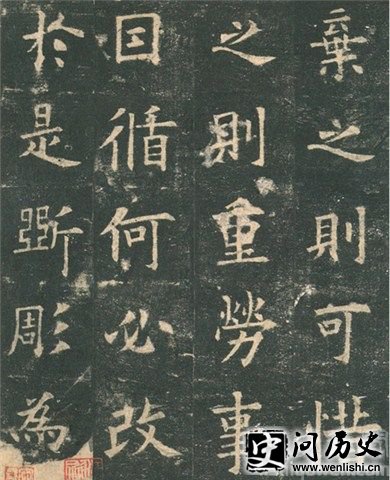 棄之則可惜
之則重勞事
因循何必改
於是斵彫為
问历史
www.wenlishi.cn